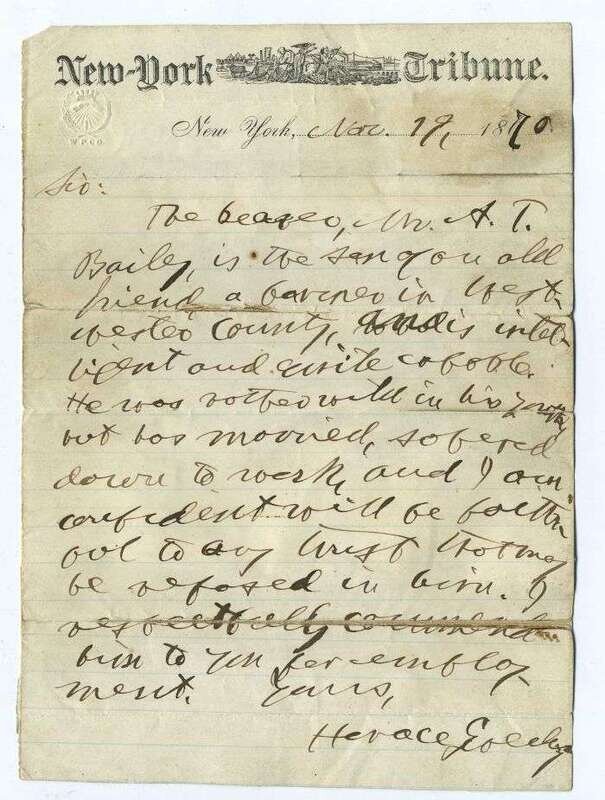 New-York Tribune.
W.P.CO.
New York, Nov. 19, 1870.
Sir:
The bearer, Mr. A. T.
Bailey, is the son of an old
friend, a farmer in West-
chester County, and is intel-
ligent and quite capable.
He was rather wild in his youth,
but has married, sobered
down to work, and I am
confident will be faith-
ful to any trust that may
be reposed in him. I
respectfully commend
him to you for employ-
ment. Yours,
Horace Greeley